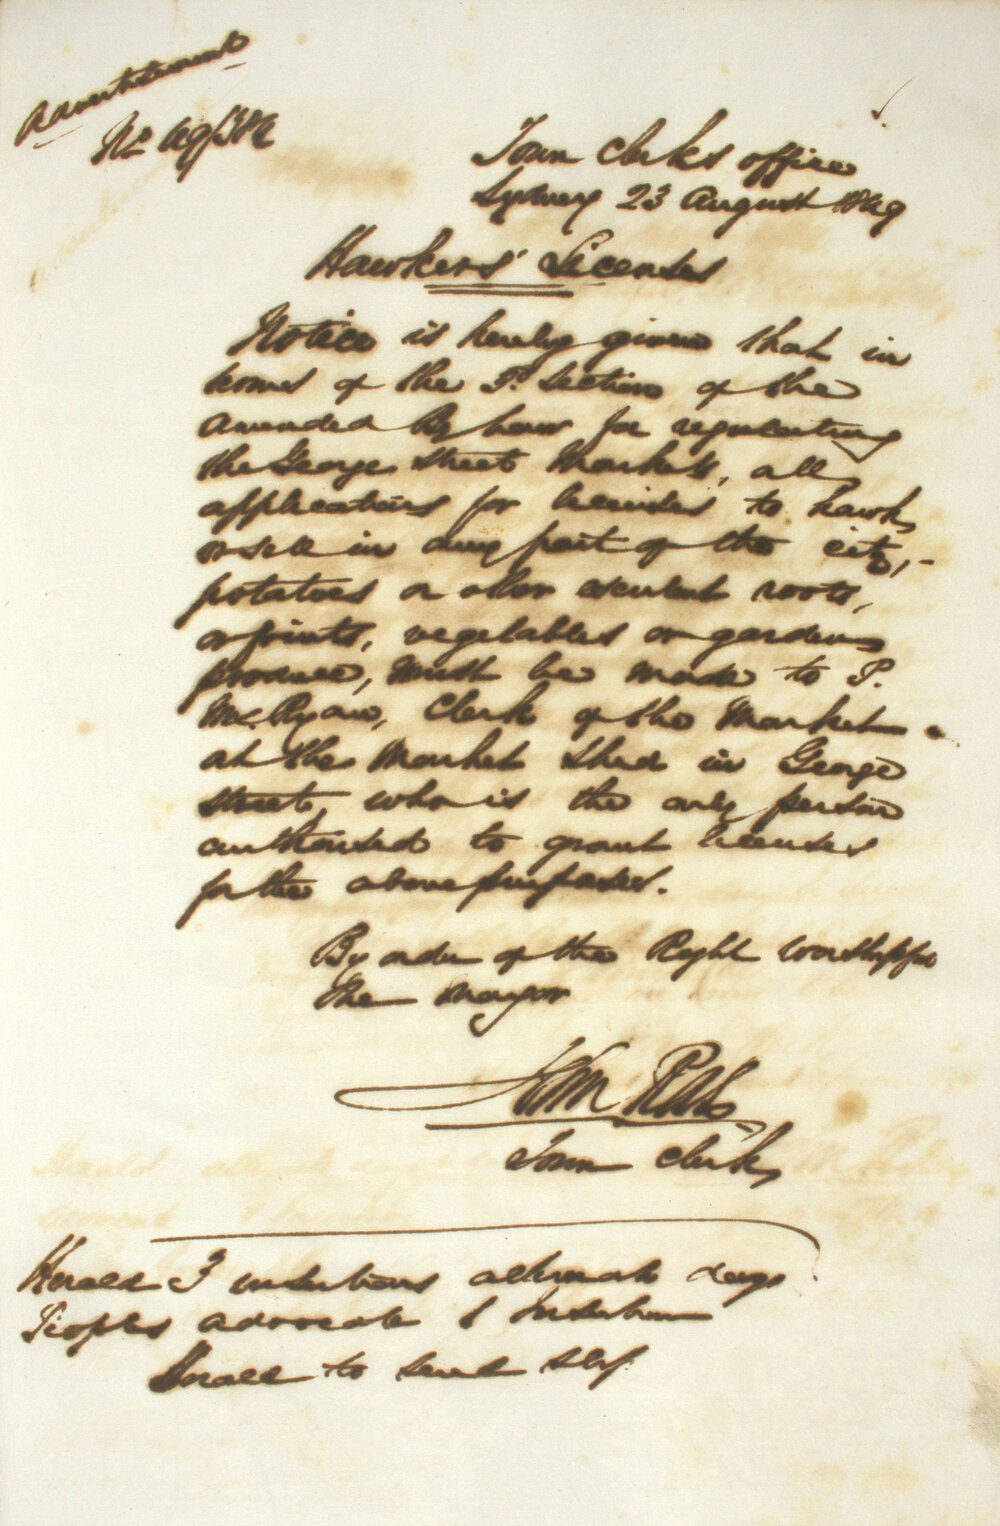 Advertisement
No 49/382
Town Clerks office
Sydney 23 August 1849
Hawkers' Licenses
Notice is hereby given that in
terms of the 1st Section of the
amended By Laws for regulating
the George Street Markets, all
applications for licenses to hawk
or sell in any part of the city,-
potatoes or other esculent roots,
or fruits, vegetables or garden
produce, must be made to P.
McRyan, Clerk of the Market
at the Market Shed in George
Street, who is the only person
authorised to grant licenses
for the above purposes.
By order of the Right Worshipful
the Mayor
John
Town Clerk
Herald 3 insertions alternate days
Peoples advocate 1 Insertion
Herald to send slip